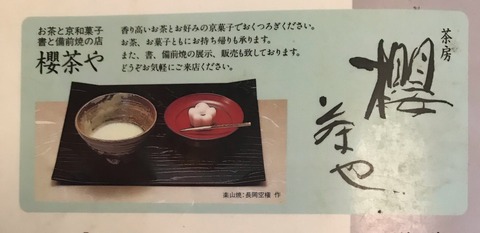 お茶と京和菓子
書と備前焼の店
櫻茶や
香り高いお茶とお好みの京菓子でおくつろぎください。
お茶、お菓子ともにお持ち帰りも承ります。
また、書、備前焼の展示、販売も致しております。
どうぞお気軽にご来店ください。
楽山焼:長岡空権 作
茶房
櫻
茶也